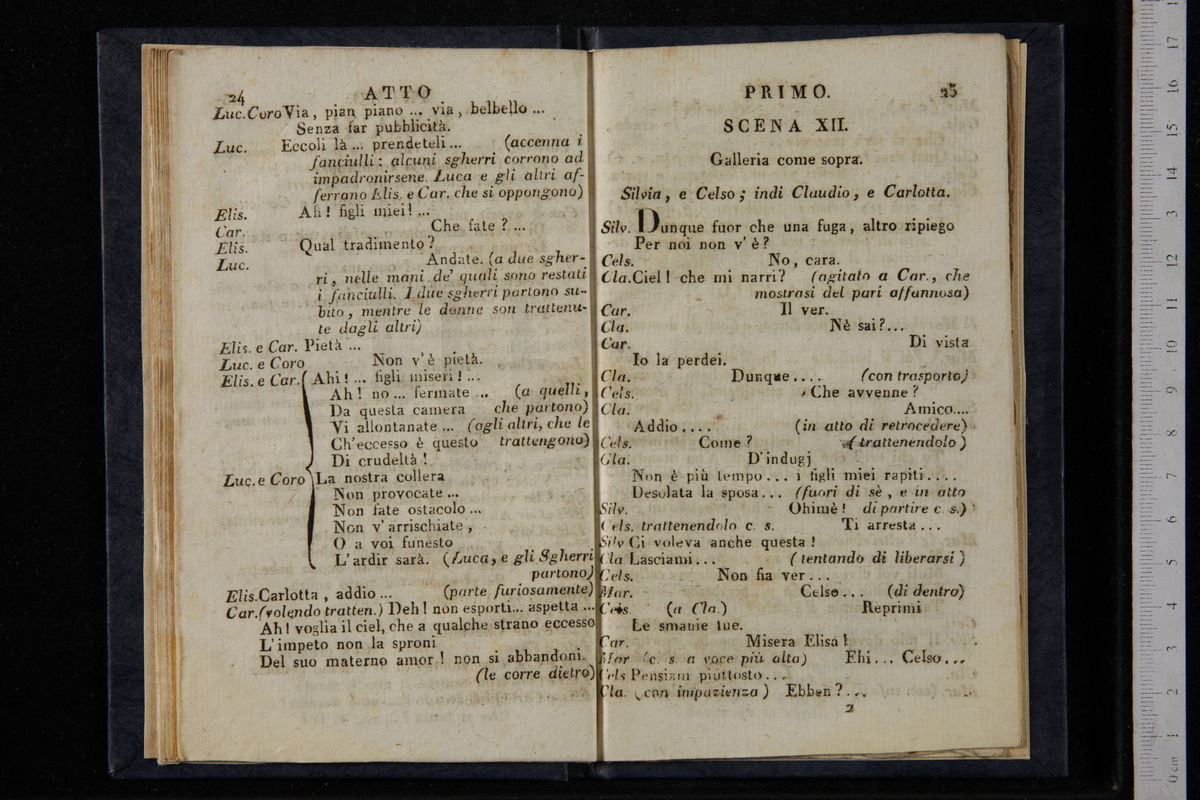 24 ATTO
Luc. Coro Via, pian piano ... via, belbello ...
Senza far pubblicità.
Luc. Eccoli là ... prendeteli ... (accenna i
fanciulli: alcuni sgherri corrono ad
impadronirsene. Luca e gli altri af-
ferrano Elis. e Car. che si oppongono)
Elis. Ah! figli miei! ...
Car. Che fate? ...
Elis. Qual tradimento?
Luc. Andate. (a due sgher-
ri, nelle mani de' quali sono restati
i fanciulli. I due sgherri partono su-
bito, mentre le donne son trattenu-
te dagli altri)
Elis. e Car. Pietà ...
Luc. e Coro Non v'è pietà.
Elis. e Car. Ahi! ... figli miseri! ...
Ah! no ... fermate .. (a quelli,
Da questa camera che partono)
Vi allontanate ... (agli altri, che le
Ch'eccesso è questo trattengono)
Di crudeltà!
Luc. e Coro La nostra collera
Non provocate ...
Non fate ostacolo ...
Non v'arrischiate,
O a voi funesto
L'ardir sarà. (Luca, e gli Sgherri
partono)
Elis. Carlotta, addio ... (parte furiosamente)
Car. (volendo tratten.) Deh! non esporti... aspetta ...
Ah! voglia il ciel, che a qualche strano eccesso
L'impeto non la sproni
Del suo materno amor! non si abbandoni.
(le corre dietro)
PRIMO. 25
SCENA XII.
Galleria come sopra.
Silvia, e Celso; indi Claudio, e Carlotta.
Silv. Dunque fuor che una fuga, altro ripiego
Per noi non v'è?
Cels. No, cara.
Cla. Ciel! che mi narri? (agitato a Car., che
mostrasi del pari affannosa)
Car. Il ver.
Cla. Nè sai?...
Car. Di vista
Io la perdei.
Cla. Dunque.... (con trasporto)
Cels. Che avvenne?
Cla. Amico....
Addio.... (in atto di retrocedere)
Cels. Come? (trattenendolo)
Cla. D'indugj
Non è più tempo... i figli miei rapiti....
Desolata la sposa... (fuori di sè, e in atto
Silv. Ohimè! di partire c. s.)
Cels. trattenendolo c. s. Ti arresta...
Silv Ci voleva anche questa!
Cla Lasciami... (tentando di liberarsi)
Cels. Non fia ver...
Mar. Celso... (di dentro)
Cels (a Cla.) Reprimi
Le smanie tue.
Car. Misera Elisa!
Mar (c. s. a voce più alta) Ehi... Celso...
Cels Pensiam piuttosto...
Cla. (con impazienza) Ebben?...
2